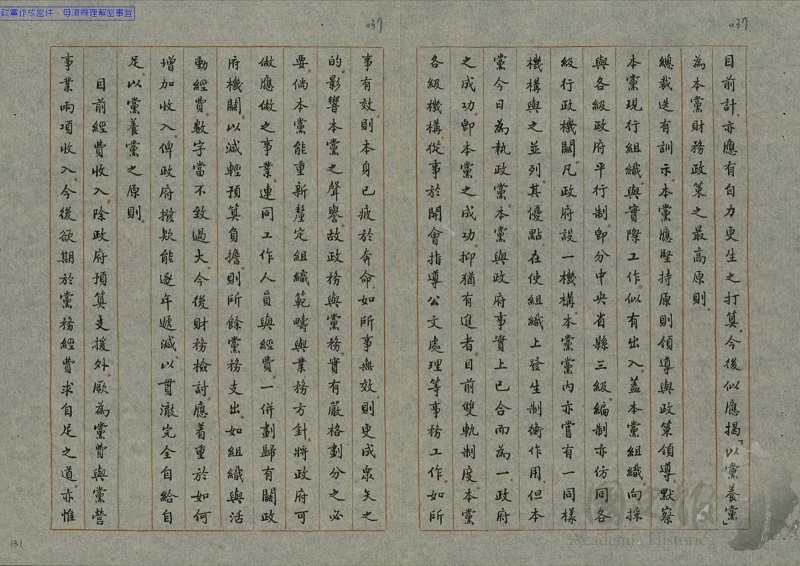 037
目前計,亦應有自力更生之打算,今後似應揭「以黨養黨」
為本黨財務政策之最高原則。
總裁迭有訓示,本黨應堅持原則領導與政策領導,默察
本黨現行組織與實際工作,似有出入,蓋本黨組織,向採
與各級政府平行制,即分中央省縣三級,編制亦仿同各
級行政機關,凡政府設一機構,本黨黨內亦嘗有一同樣
機構與之並列,其優點在使組織上發生制衡作用,但本
黨今日為執政黨,本黨與政府事實上已合而為一,政府
之成功,即本黨之成功,抑猶有進者,目前雙軌制度,本黨
各級機構從事於開會指導公文處理等事務工作,如所
037
事有效,則本身已疲於奔命,如所事無效,則更成眾矢之
的,影響本黨之聲譽,故政務與黨務,實有嚴格劃分之必
要,倘本黨能重新釐定組織範疇與業務方針,將政府可
做應做之事業,連同工作人員與經費,一併劃歸有關政
府機關,以減輕預算負擔,則所餘黨務支出,如組織與活
動經費,數字當不致過大,今後財務檢討,應着重於如何
增加收入,俾政府撥款能逐年遞減,以貫澈完全自給自
足,以黨養黨之原則。
目前經費收入,除政府預算支援外,厥為黨費與黨營
事業兩項收入,今後欲期於黨務經費求自足之道,亦惟
131
政黨作成密件,毋須辦理解密事宜
國史館
Academia Historica